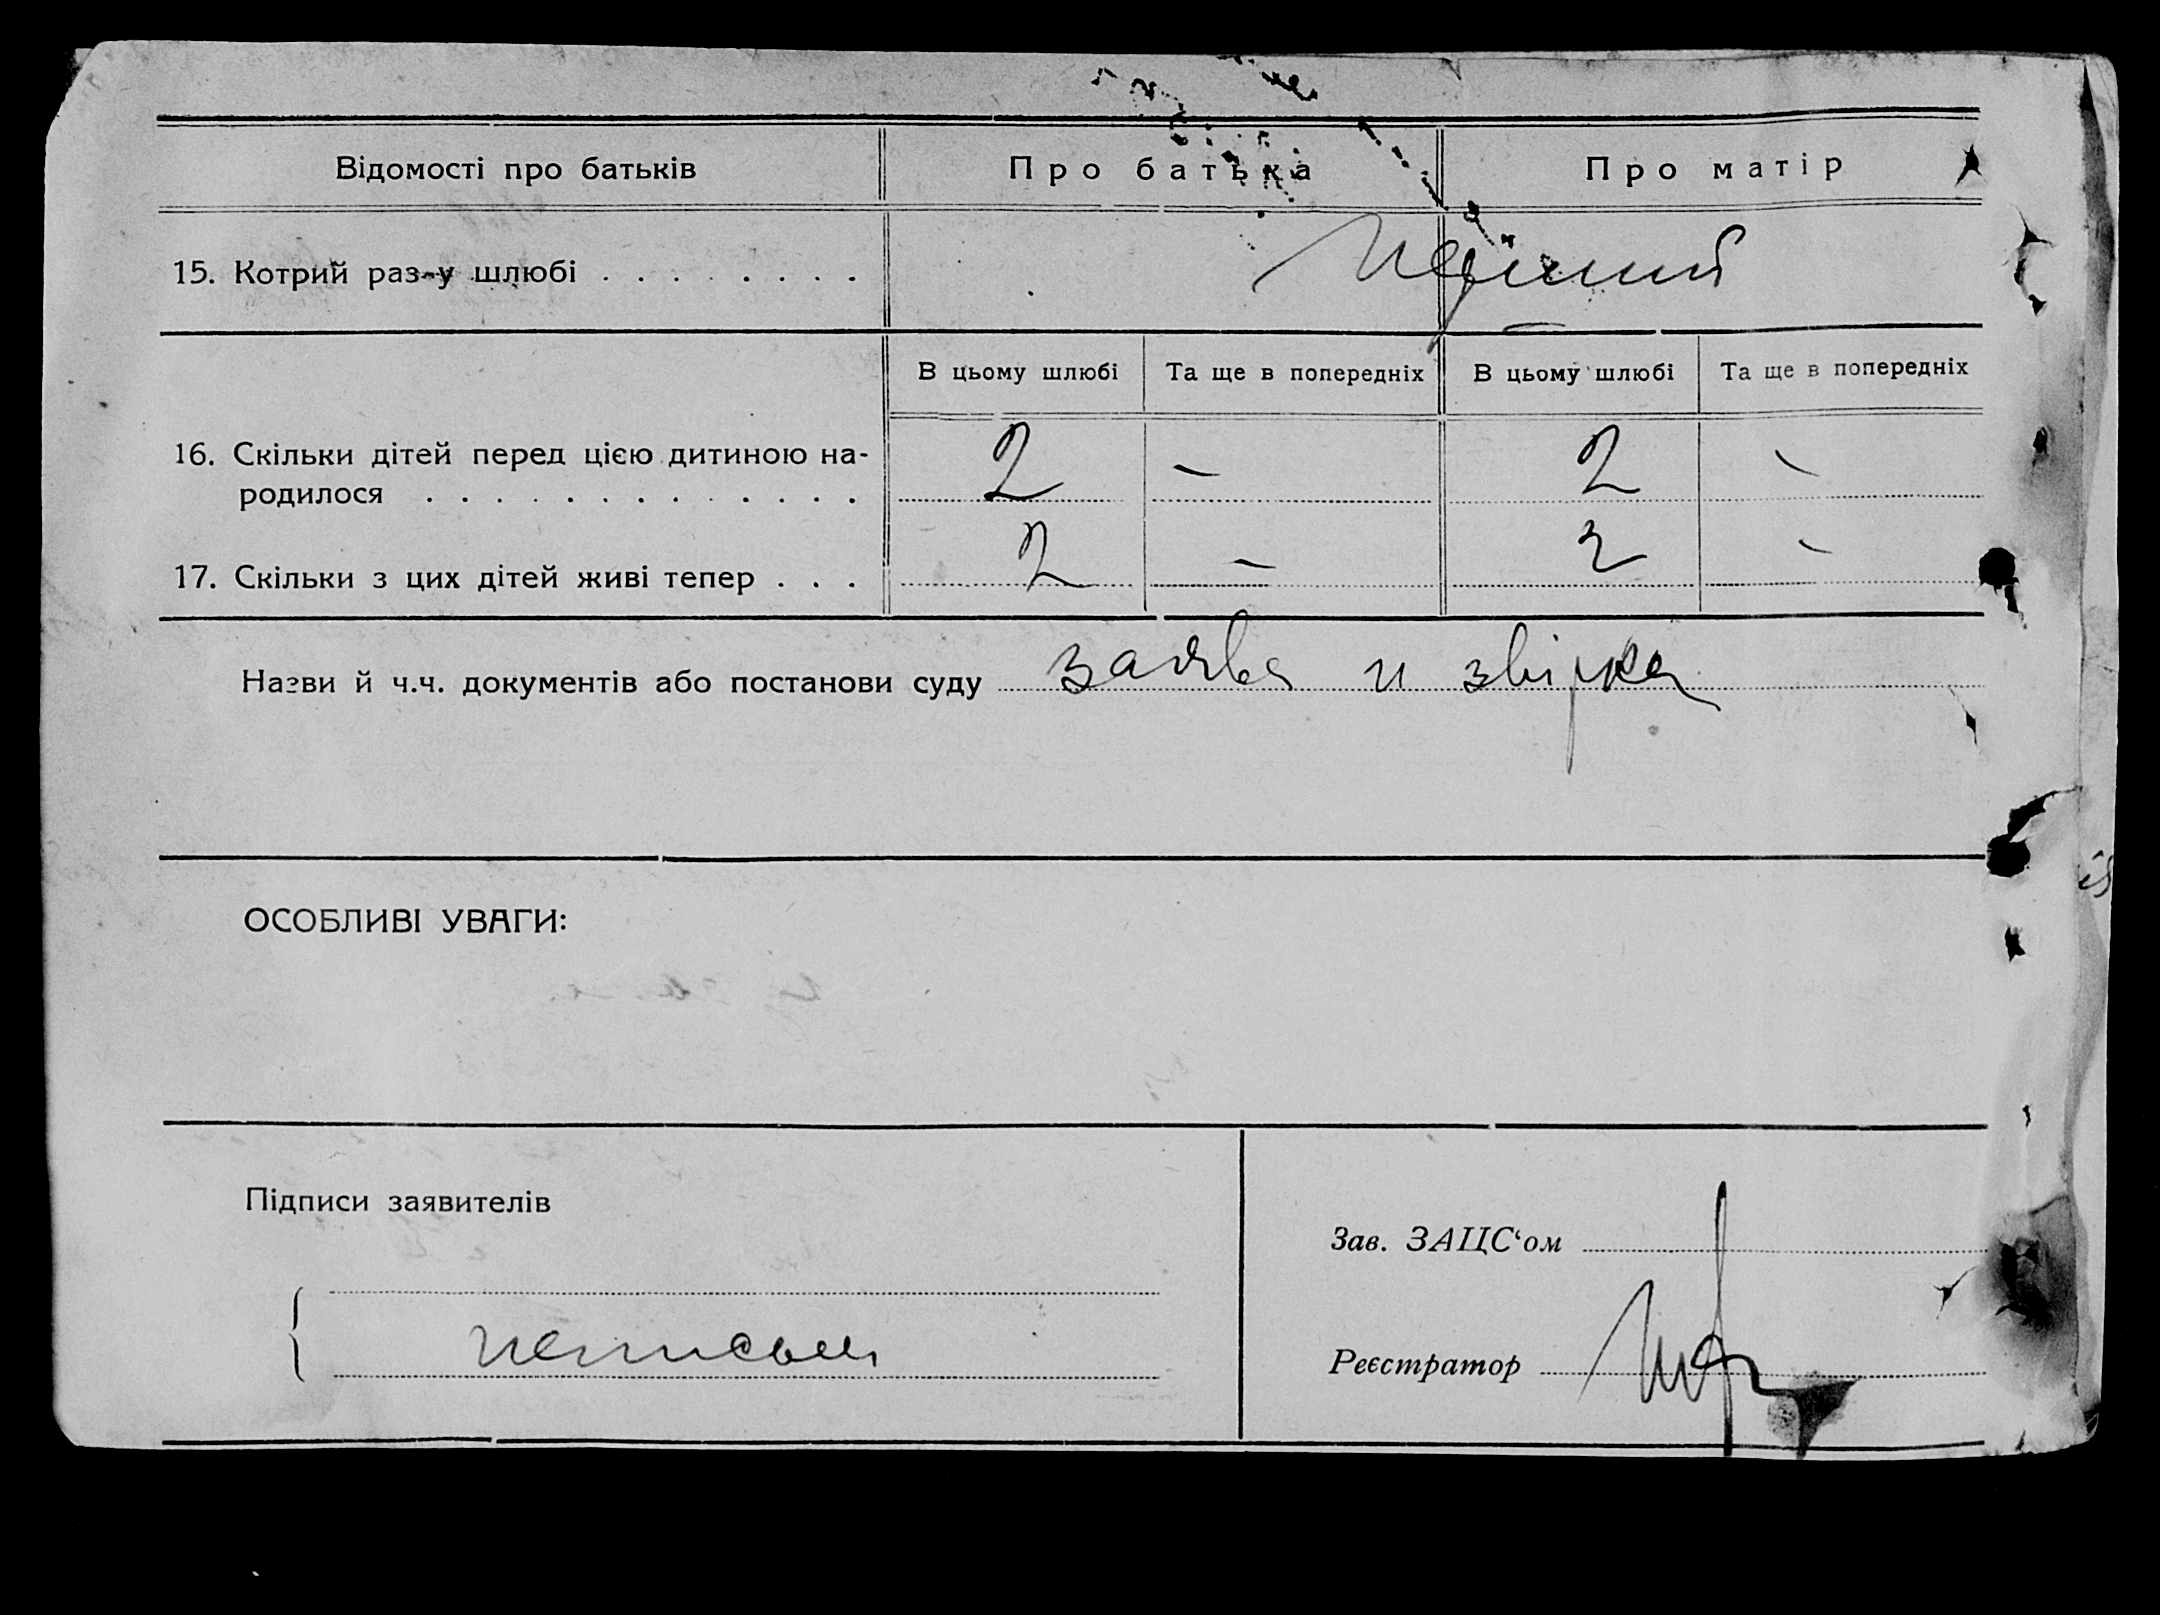 Відомості про батьків Про батька Про матір
15. Котрий раз у шлюбі . . . . . . . . перший
В цьому шлюбі Та ще в попередніх В цьому шлюбі Та ще в попередніх
16. Скільки дітей перед цією дитиною на-
родилося . . . . . . . . . . . . . 2 – 2 –
17. Скільки з цих дітей живі тепер . . . 2 – 2 –
Назви й ч.ч. документів або постанови суду заява и звірка
ОСОБЛИВІ УВАГИ:
Підписи заявителів
Зав. ЗАЦС‘ом
Реєстратор